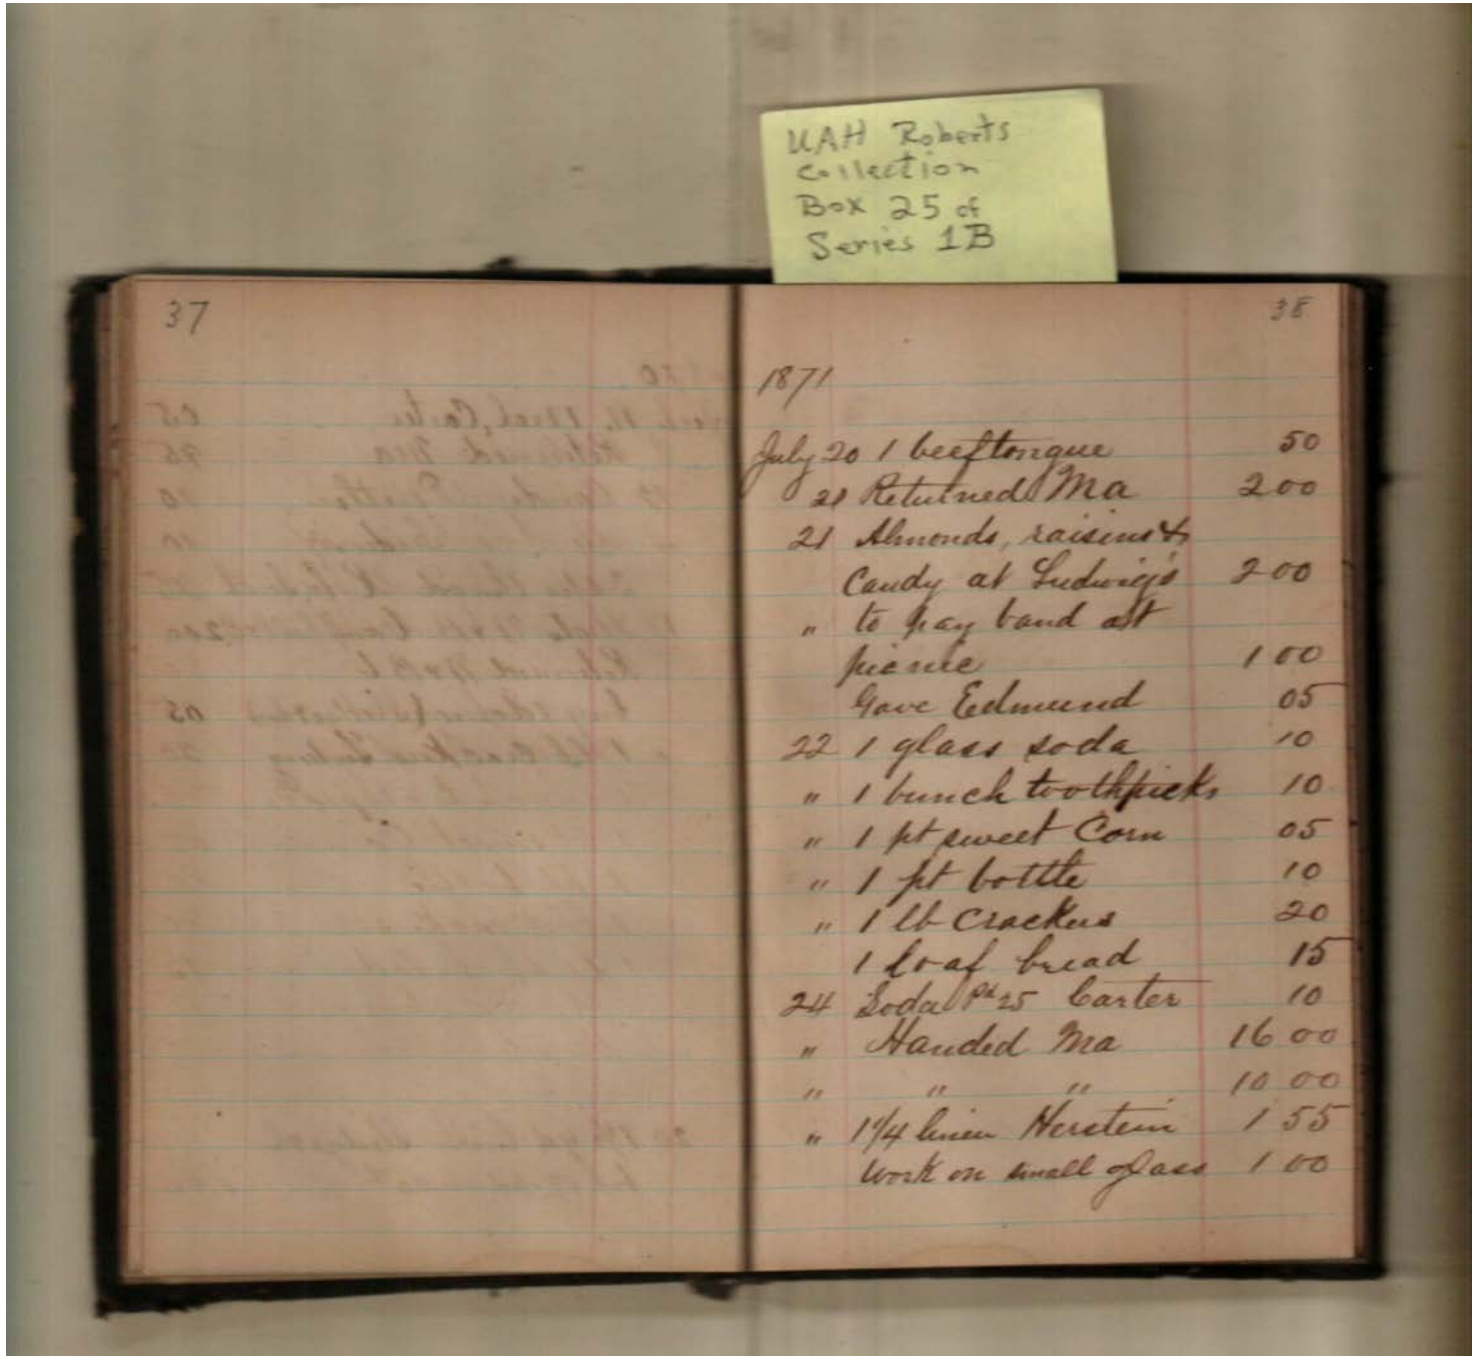 UAH Roberts
Collection
Box 25 of
Series 1B
37
38
1871
July 20 1 beeftongue 50
21 Returned Ma 2 00
21 Almonds, raisins &
Candy at Ludwig's 2 00
" to pay band at
picnic 1 00
Gave Edmund 05
22 1 glass soda 10
" 1 bunch toothpicks 10
" 1 pt sweet Corn 05
" 1 pt bottle 10
" 1 lb Crackers 20
1 loaf bread 15
24 Soda Pd 25 Carter 10
" Handed Ma 16 00
" " " 10 00
" 1 1/4 linen Herstein 1 55
Work on small glass 1 00